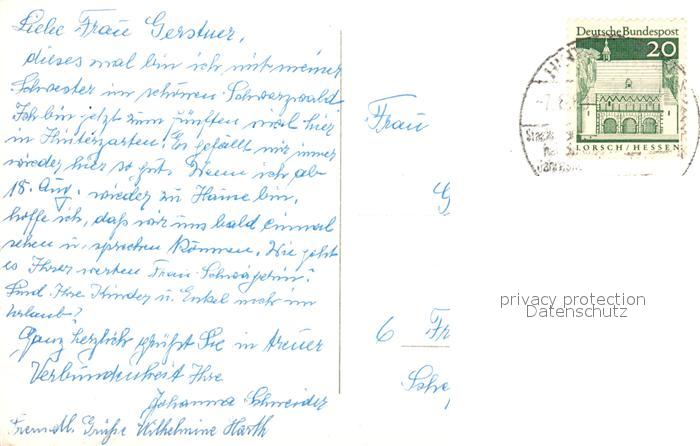 Liebe Frau Gerstner,
dieses mal bin ich mit meiner
Schwester im schönen Schwarzwald
Ich bin jetzt zum fünften mal hier
in Hinterzarten. Es gefällt mir immer
wieder hier so gut. Wenn ich ab
18. Aug. wieder zu Hause bin,
hoffe ich, daß wir uns bald einmal
sehen u. sprechen können. Wie geht
es Ihrer werten Frau Schwägerin?
Sind Ihre Kinder u. Enkel noch im
Urlaub?
Ganz herzlich grüßt Sie in treuer
Verbundenheit Ihre
Johanna Schneider
Freundl. Grüße Wilhelmine Harth
Frau
G
6 Fr
Sche
Deutsche Bundespost
20
LORSCH/HESSEN
privacy protection
Datenschutz